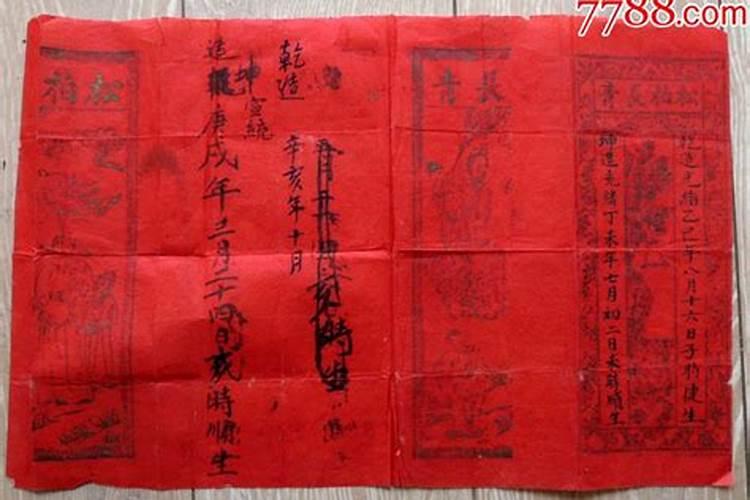 7788.com
松柏長青
乾造光緒乙巳年八月十六日子時健生
坤造光緒丁未年七月初二日未時順生
長青
時生
乾造
辛亥年十月
宣統
坤
造
庚戌年月二十四日時順生
松柏